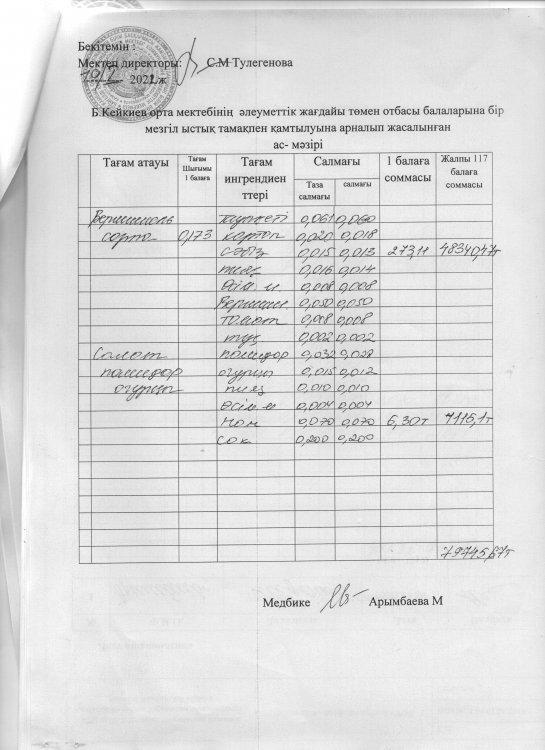 Бекітемін :
Мектеп директоры: С.М Тулегенова
19/2 2022ж
Б.Кейкиев орта мектебінің әлеуметтік жағдайы төмен отбасы балаларына бір
мезгіл ыстық тамақпен қамтылуына арналып жасалынған
ас- мәзірі
Тағам атауы Тағам Шығымы 1 балаға Тағам ингрендиен ттері Салмағы 1 балаға соммасы Жалпы 117 балаға соммасы
Таза салмағы салмағы
0,061 0,060
сорпа 0,173 картоп 0,020 0,018
сәбіз 0,015 0,013 273,11
пияз 0,016 0,014
0,008 0,008
0,050 0,050
томат 0,008 0,008
тұз 0,002 0,002
Салат помидор 0,032 0,028
помидор огурцы 0,015 0,012
огурцы пияз 0,010 0,010
өсім м 0,004 0,004
нан 0,070 0,070 6,30т
сок 0,200 0,200
Медбике Арымбаева М